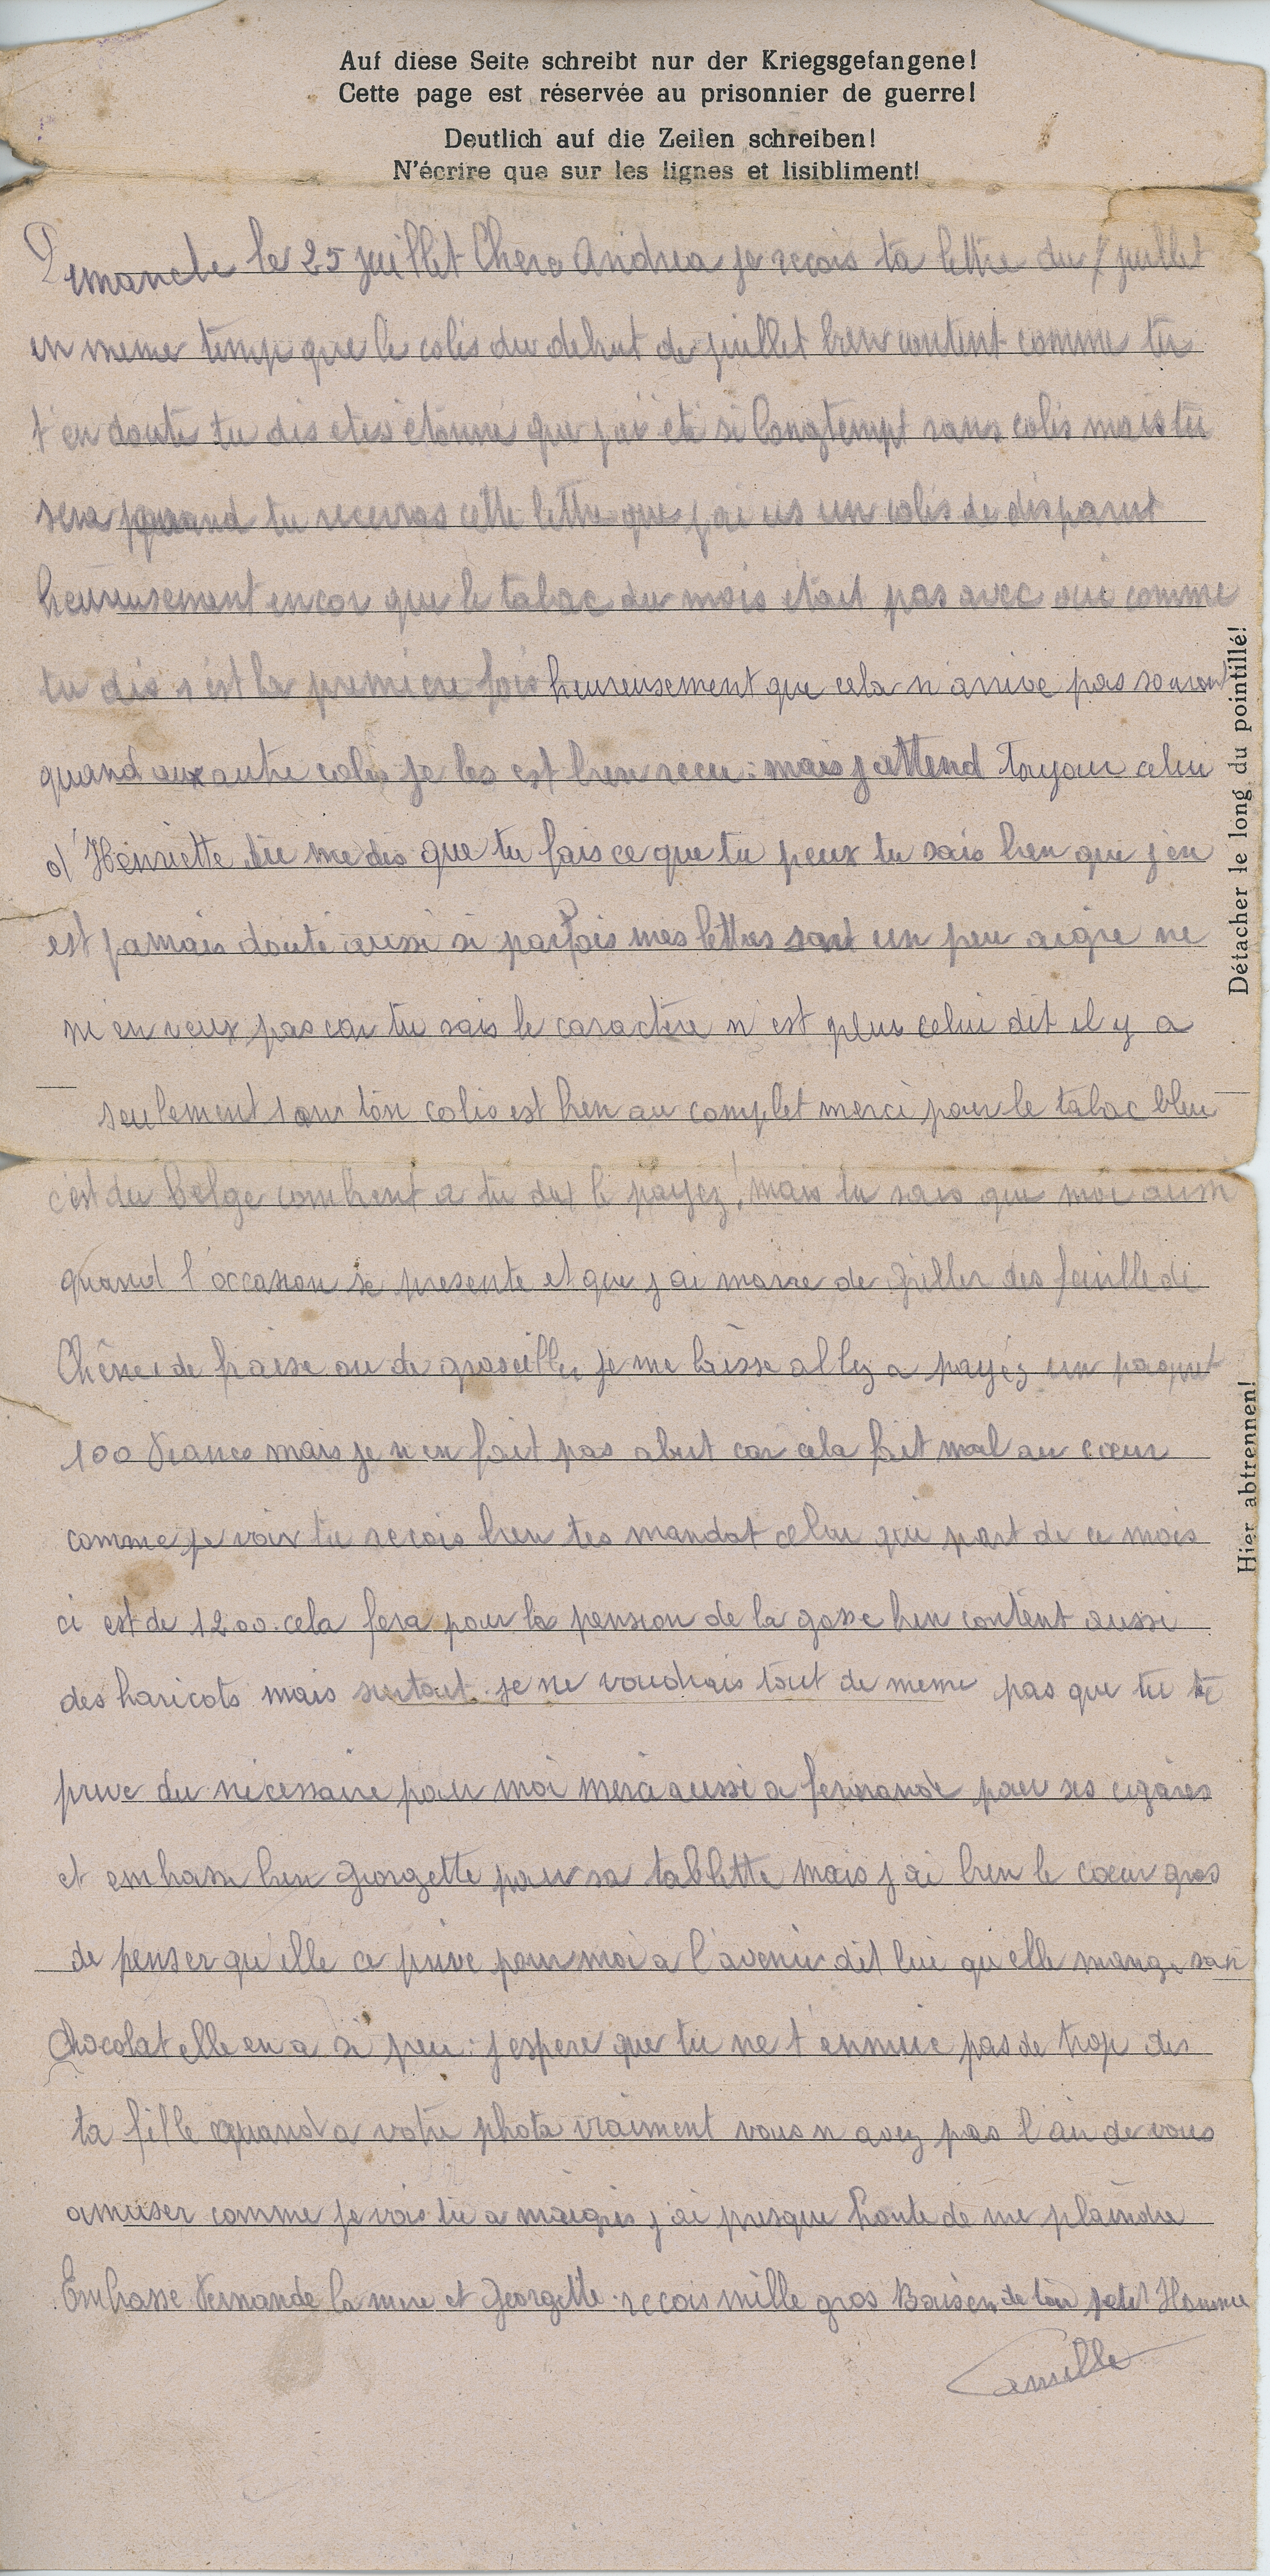 Auf diese Seite schreibt nur der Kriegsgefangene!
Cette page est réservée au prisonnier de guerre!
Deutlich auf die Zeilen schreiben!
N'écrire que sur les lignes et lisibliment!
Dimanche le 25 juillet Chere Andrea je recois ta lettre du juillet
en meme temp que le colis du debut de juillet bien content comme tu
t'en doute tu dis etonné que j'ai été si longtempt sans colis mais tu
sera quand tu recevras cette lettre que j'ai us un colis de disparut
heureusement encor que le tabac du mois etait pas avec oui comme
tu dis s'est la premiere fois heureusement que cela n'arrive pas souvent
quand aux autre colis je les est bien recu : mais j'attend toujour celui
d'Henriette tu me dis que tu fais ce que tu peux tu sais bien que j'en
est jamais douté aussi si parfois mes lettres sont un peu aigre ne
m'en veux pas car tu sais le caractere n'est plus celui dit il y a
seulement 1 an ton colis est bien au complet merci pour le tabac bleu
c'est du belge combient a tu du le payez ! mais tu sais que moi aussi
quand l'occasion se presente et que j'ai marre de griller des feuille de
Chêne de fraise ou de groseiller je me laisse allez a payéz un paquet
100 Francs mais je n'en fait pas abut car cela fait mal au cœur
comme je vois tu recois bien tes mandat celui qui part de ce mois
ci est de 1200. cela fera pour la pension de la gosse bien content aussi
des haricots mais surtout je ne voudrais tout de meme pas que tu te
prive du nécessaire pour moi merci aussi a fernande pour ses cigares
et embrasse bien Georgette pour sa tablette mais j'ai bien le cœur gros
de penser qu'elle ce prive pour moi a l'avenir dit lui qu'elle mange son
chocolat elle en a si peu : j'espere que tu ne t'ennuie pas de trop de
ta fille quand a votre photo vraiment vous n'avez pas l'air de vous
amuser comme je vois tu a maigris j'ai presque honte de me plaindre
Embrasse Fernande la mere et Georgette. recois mille gros Baisers de ton petit Homme
Camille
Détacher le long du pointillé!
Hier abtrennen!